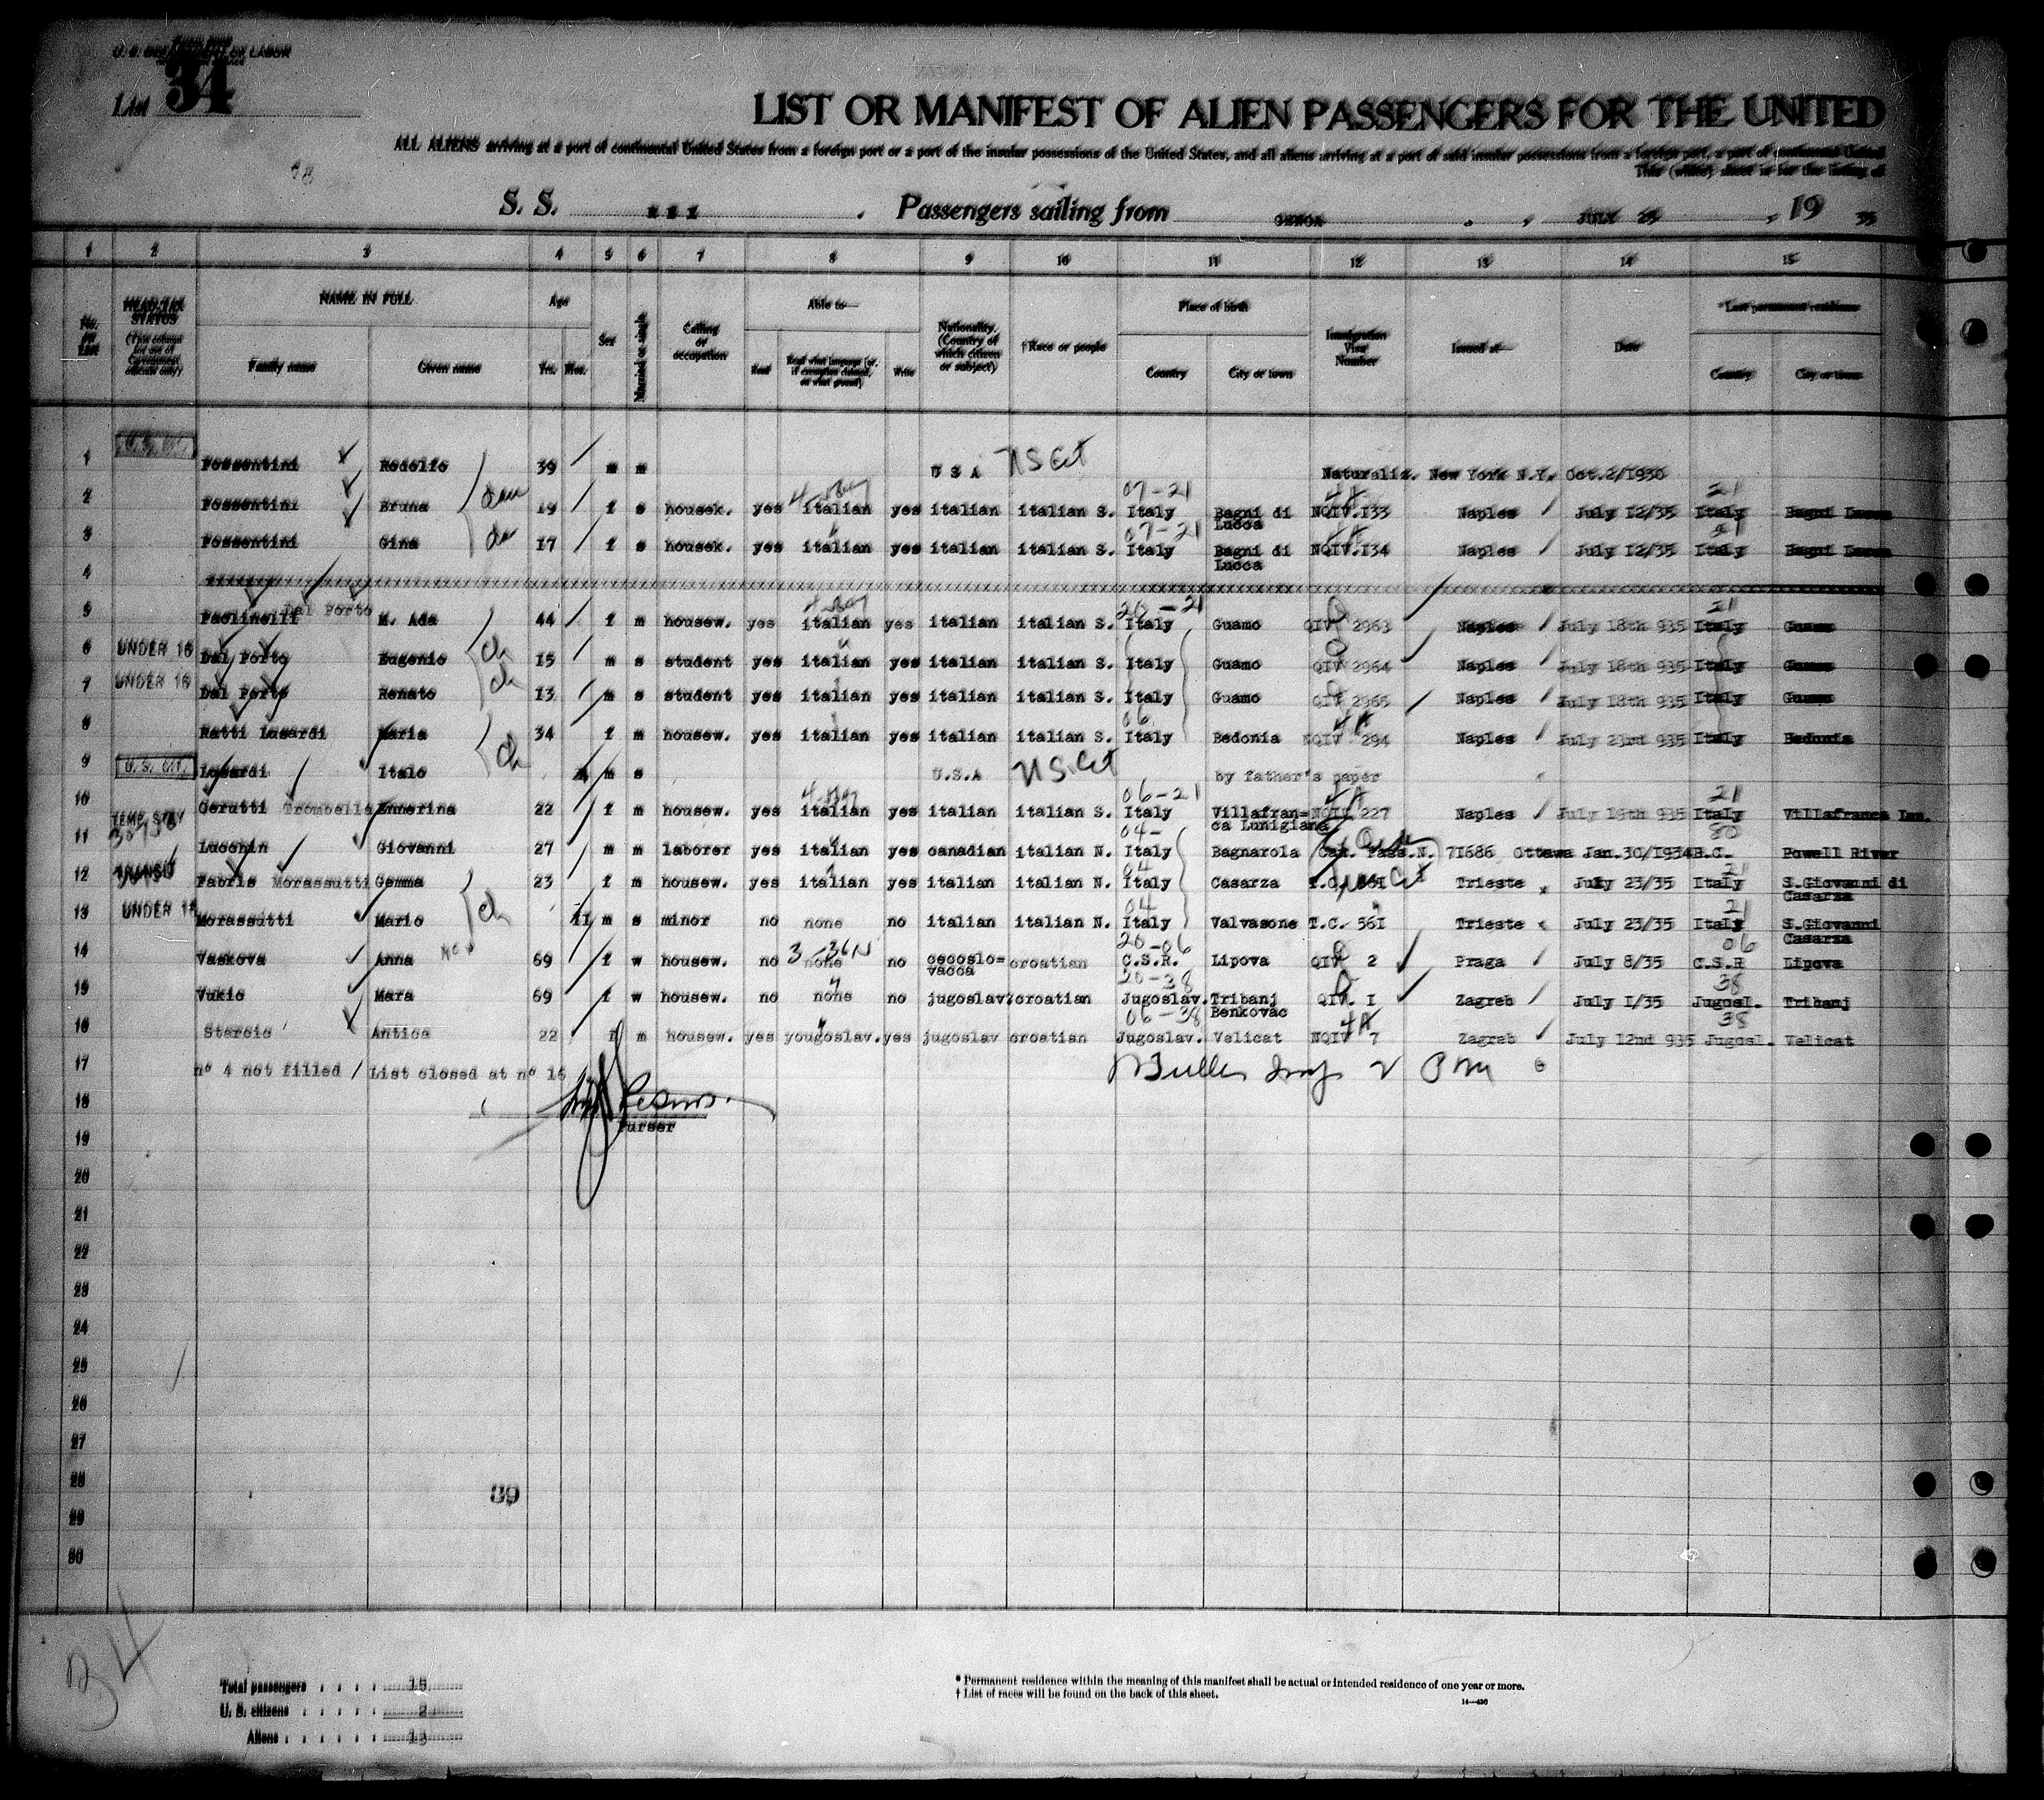 U. S. DEPARTMENT OF LABOR
List 34
LIST OR MANIFEST OF ALIEN PASSENGERS FOR THE UNITED
ALL ALIENS arriving at a port of continental United States from a foreign port or a port of the insular possessions of the United States, and all aliens arriving at a port of said insular possessions from a foreign port, a port of continental United
This (white) sheet is for the listing of
S. S. REX . Passengers sailing from GENOA , JULY 25 , 19 35
1 2 3 4 5 6 7 8 9 10 11 12 13 14 15
No. on List
HEAD-TAX STATUS (This column for use of Government officials only)
NAME IN FULL Family name Given name
Age Yrs. Mos.
Sex
Married or single
Calling or occupation
Able to— Read Read what language (or, if exemption claimed, on what ground) Write
Nationality. (Country of which citizen or subject)
†Race or people
Place of birth Country City or town
Immigration Visa Number
Issued at—
Date
*Last permanent residence Country City or town
1 Possentini Rodolfo 39 m m U S A US Cit Naturaliz. New York N.Y. Oct.2/1930
07-21 21
2 Possentini Bruna 19 f s housek. yes italian yes italian italian S. Italy Bagni di Lucca NQIV.133 Naples July 12/35 Italy Bagni Lucca
07-21 21
3 Possentini Gina 17 f s housek. yes italian yes italian italian S. Italy Bagni di Lucca NQIV.134 Naples July 12/35 Italy Bagni Lucca
4
20-21 21
5 Paolinelli Dal Porto M. Ada 44 f m housew. yes italian yes italian italian S. Italy Guamo QIV 2963 Naples July 18th 935 Italy Guamo
6 UNDER 16 Dal Porto Eugenio ch 15 m s student yes italian yes italian italian S. Italy Guamo QIV 2964 Naples July 18th 935 Italy Guamo
7 UNDER 16 Dal Porto Renato ch 13 m s student yes italian yes italian italian S. Italy Guamo QIV 2965 Naples July 18th 935 Italy Guamo
06
8 Ratti Lusardi Maria 34 f m housew. yes italian yes italian italian S. Italy Bedonia NQIV 294 Naples July 23rd 935 Italy Bedonia
9 U. S. CIT. Lusardi Italo ch m s U.S.A US.Cit by father's paper
06-21 21
10 Cerutti Trombella Ennerina 22 f m housew. yes italian yes italian italian S. Italy Villafran= ca Lunigiana NQIV 227 Naples July 19th 935 Italy Villafranca Lun.
TEMP. STAY
04- 80
11 Lucchin Giovanni 27 m m laborer yes italian yes canadian italian N. Italy Bagnarola Can. Pass.N. 71686 Ottawa Jan.30/1934 B.C. Powell River
04 21
12 TRANSIT Fabris Morassutti Gemma 23 f m housew. yes italian yes italian italian N. Italy Casarza T.C. 561 Trieste July 23/35 Italy S.Giovanni di Casarza
04 21
13 UNDER 16 Morassutti Mario ch 11 m s minor no none no italian italian N. Italy Valvasone T.C. 561 Trieste July 23/35 Italy S.Giovanni Casarza
20-06 06
14 Vaskova Anna 69 f w housew. no none no cecoslo= vacca croatian C.S.R. Lipova QIV 2 Praga July 8/35 C.S.R Lipova
20-38 38
15 Vukic Mara 69 f w housew. no none no jugoslav. croatian Jugoslav. Tribanj Benkovac QIV. 1 Zagreb July 1/35 Jugosl. Tribanj
06-38 38
16 Starcic Antica 22 f m housew. yes yougoslav. yes jugoslav croatian Jugoslav. Velicat NQIV 7 Zagreb July 12nd 935 Jugosl. Velicat
17 n° 4 not filled / List closed at n° 16
18
Purser
19
20
21
22
23
24
25
26
27
28
39
29
30
34
Total passengers . . . . 15
U. S. citizens . . . . 2
Aliens . . . . . 13
* Permanent residence within the meaning of this manifest shall be actual or intended residence of one year or more.
† List of races will be found on the back of this sheet.
14—430